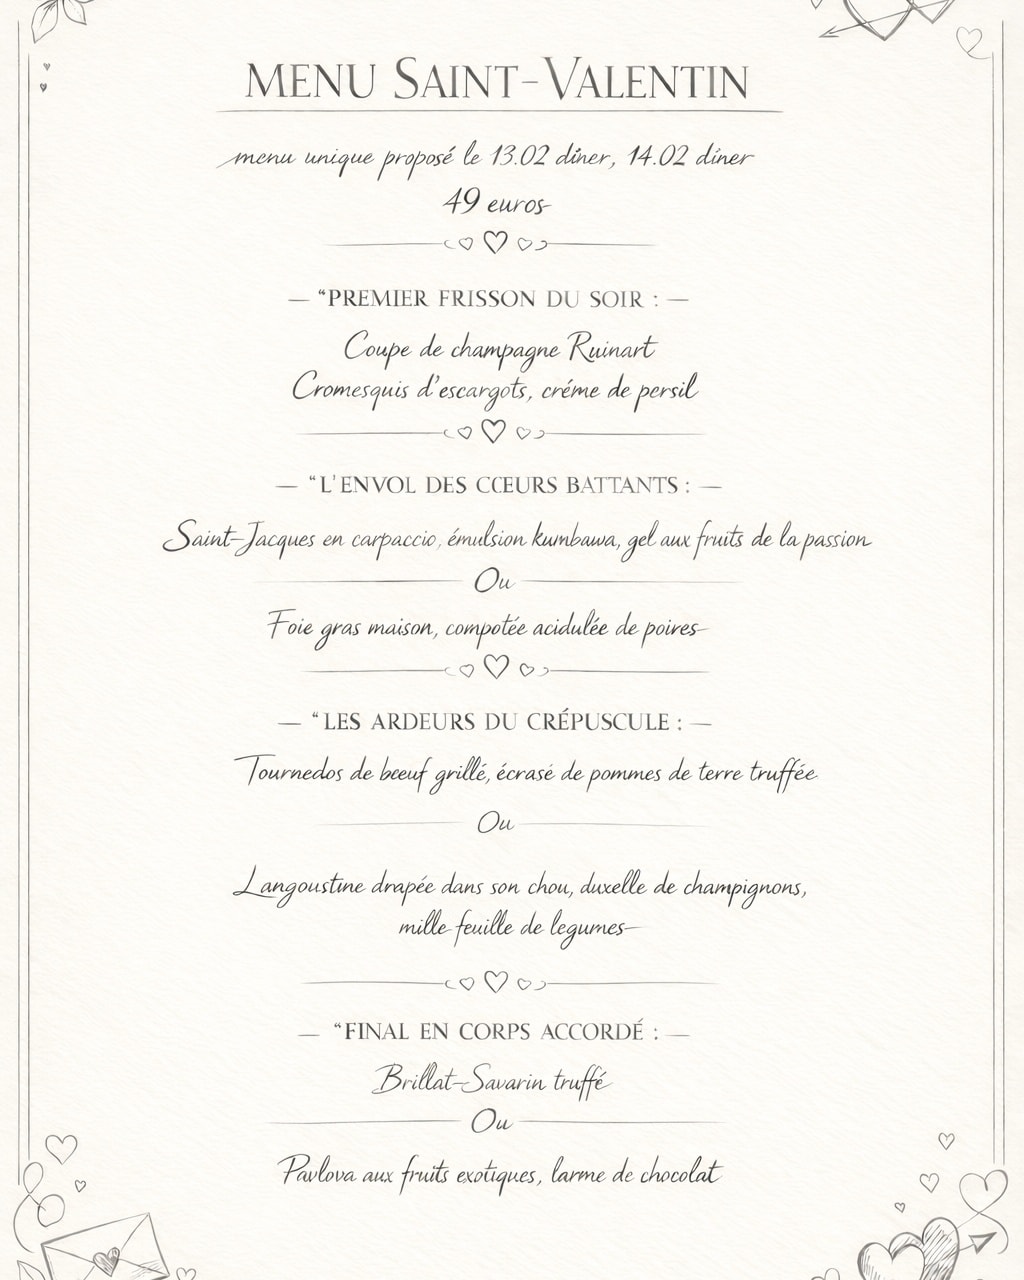 MENU SAINT-VALENTIN
menu unique proposé le 13.02 dîner, 14.02 dîner
49 euros
— “PREMIER FRISSON DU SOIR : —
Coupe de champagne Ruinart
Cromesquis d'escargots, créme de persil
— “L'ENVOL DES CŒURS BATTANTS : —
Saint-Jacques en carpaccio, émulsion kumbawa, gel aux fruits de la passion
Ou
Foie gras maison, compotée acidulée de poires
— “LES ARDEURS DU CRÉPUSCULE : —
Tournedos de bœuf grillé, écrasé de pommes de terre truffée
Ou
Langoustine drapée dans son chou, duxelle de champignons,
mille feuille de legumes
— “FINAL EN CORPS ACCORDÉ : —
Brillat-Savarin truffé
Ou
Pavlova aux fruits exotiques, larme de chocolat